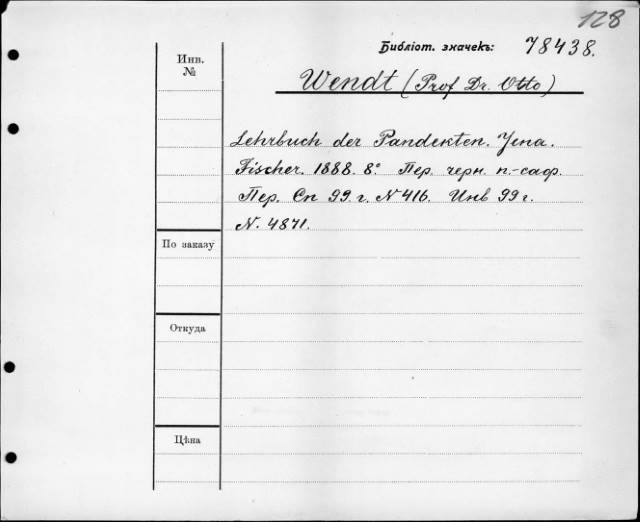 128
Библіот. значекъ: 78438.
Инв.
№
Wendt (Prof Dr. Otto)
Lehrbuch der Pandekten. Jena.
Fischer. 1888. 8° Пер. черн. п.-саф.
Пер. Сп 99 г. N 416. Инв 99 г.
N. 4871.
По заказу
Откуда
Цѣна